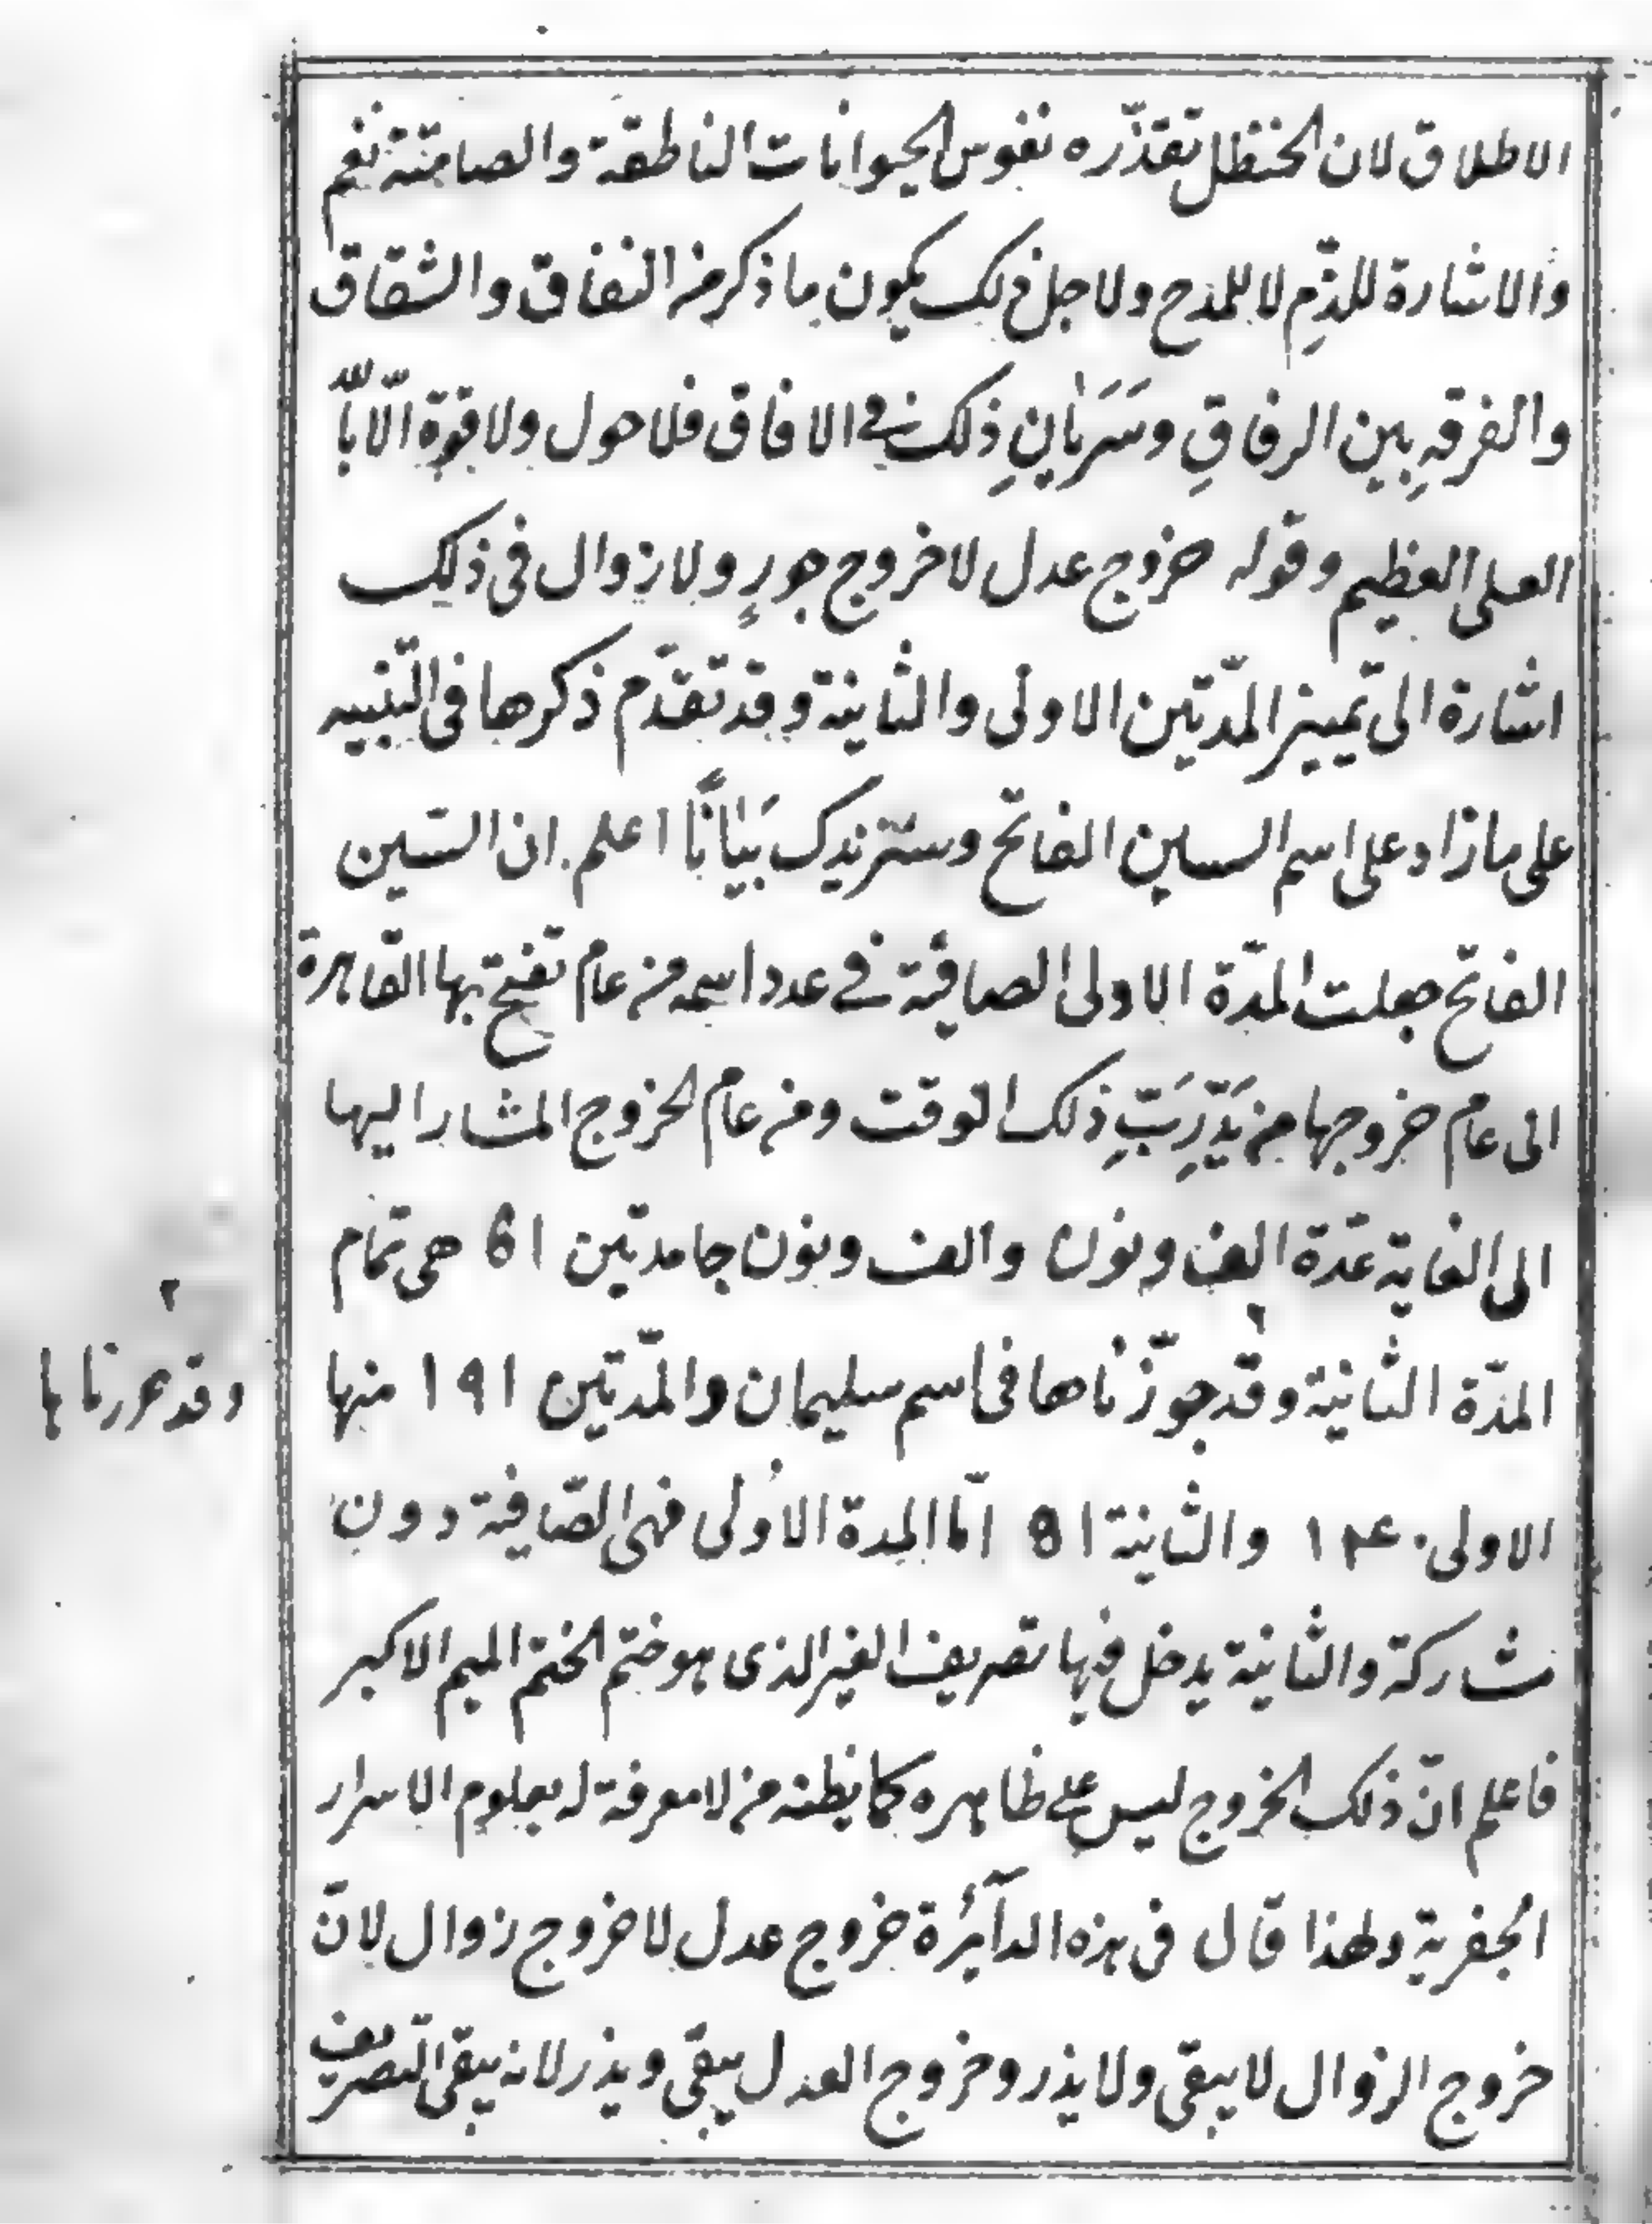 الاطلاق لان الحنظل تقذّره نفوس الحيوانات الناطقة والصامتة نعم
والاشارة للذّمِ لا للمدح ولاجل ذلك يكون ما ذكر من النفاق والشقاق
والفرقةِ بين الرفاقِ وسَرَيٰانِ ذلك في الافاق فلا حول ولا قوة الّا باللّه
العلى العظيم وقوله خروج عدل لا خروج جورٍ ولا زوال فى ذلك
اشارة الى تمييز المدّتين الاولى والثانية وقد تقدّم ذكرها فى التنبيه
على ما زاد على اسم السين الفاتح وسنزيدك بَيٰانًا اعلم ان السّين
الفاتح جعلت المدّة الاولى الصافية في عدد اسمه من عام تفتح بها القاهرة
الى عام خروجها من يَدِ رَبِّ ذلك الوقت ومن عام الخروج المشار اليها
الى الغاية عدّة الف ونون والف ونون جامدتين ١٥ هى تمام
المدّة الثانية وقد جوّزناها فى اسم سليمان والمدّتين ١٩١ منها
وقد حررناها
الاولى ١٤٠ والثانية ٥١ امّا المدة الاُولى فهى الصّافية دون
مشاركة والثانية يدخل فيها تصريف الغير الذى هو ختم الختم الميم الاكبر
فاعلم انّ ذلك الخروج ليس على ظاهره كما يظنه من لا معرفة له بعلوم الاسرار
الجفرية ولهذا قال فى هذه الدآئرة خروج عدل لا خروج زوال لانّ
خروج الزوال لا يبقى ولا يذر وخروج العدل يبقى ويذر لانه يبقى التصريف